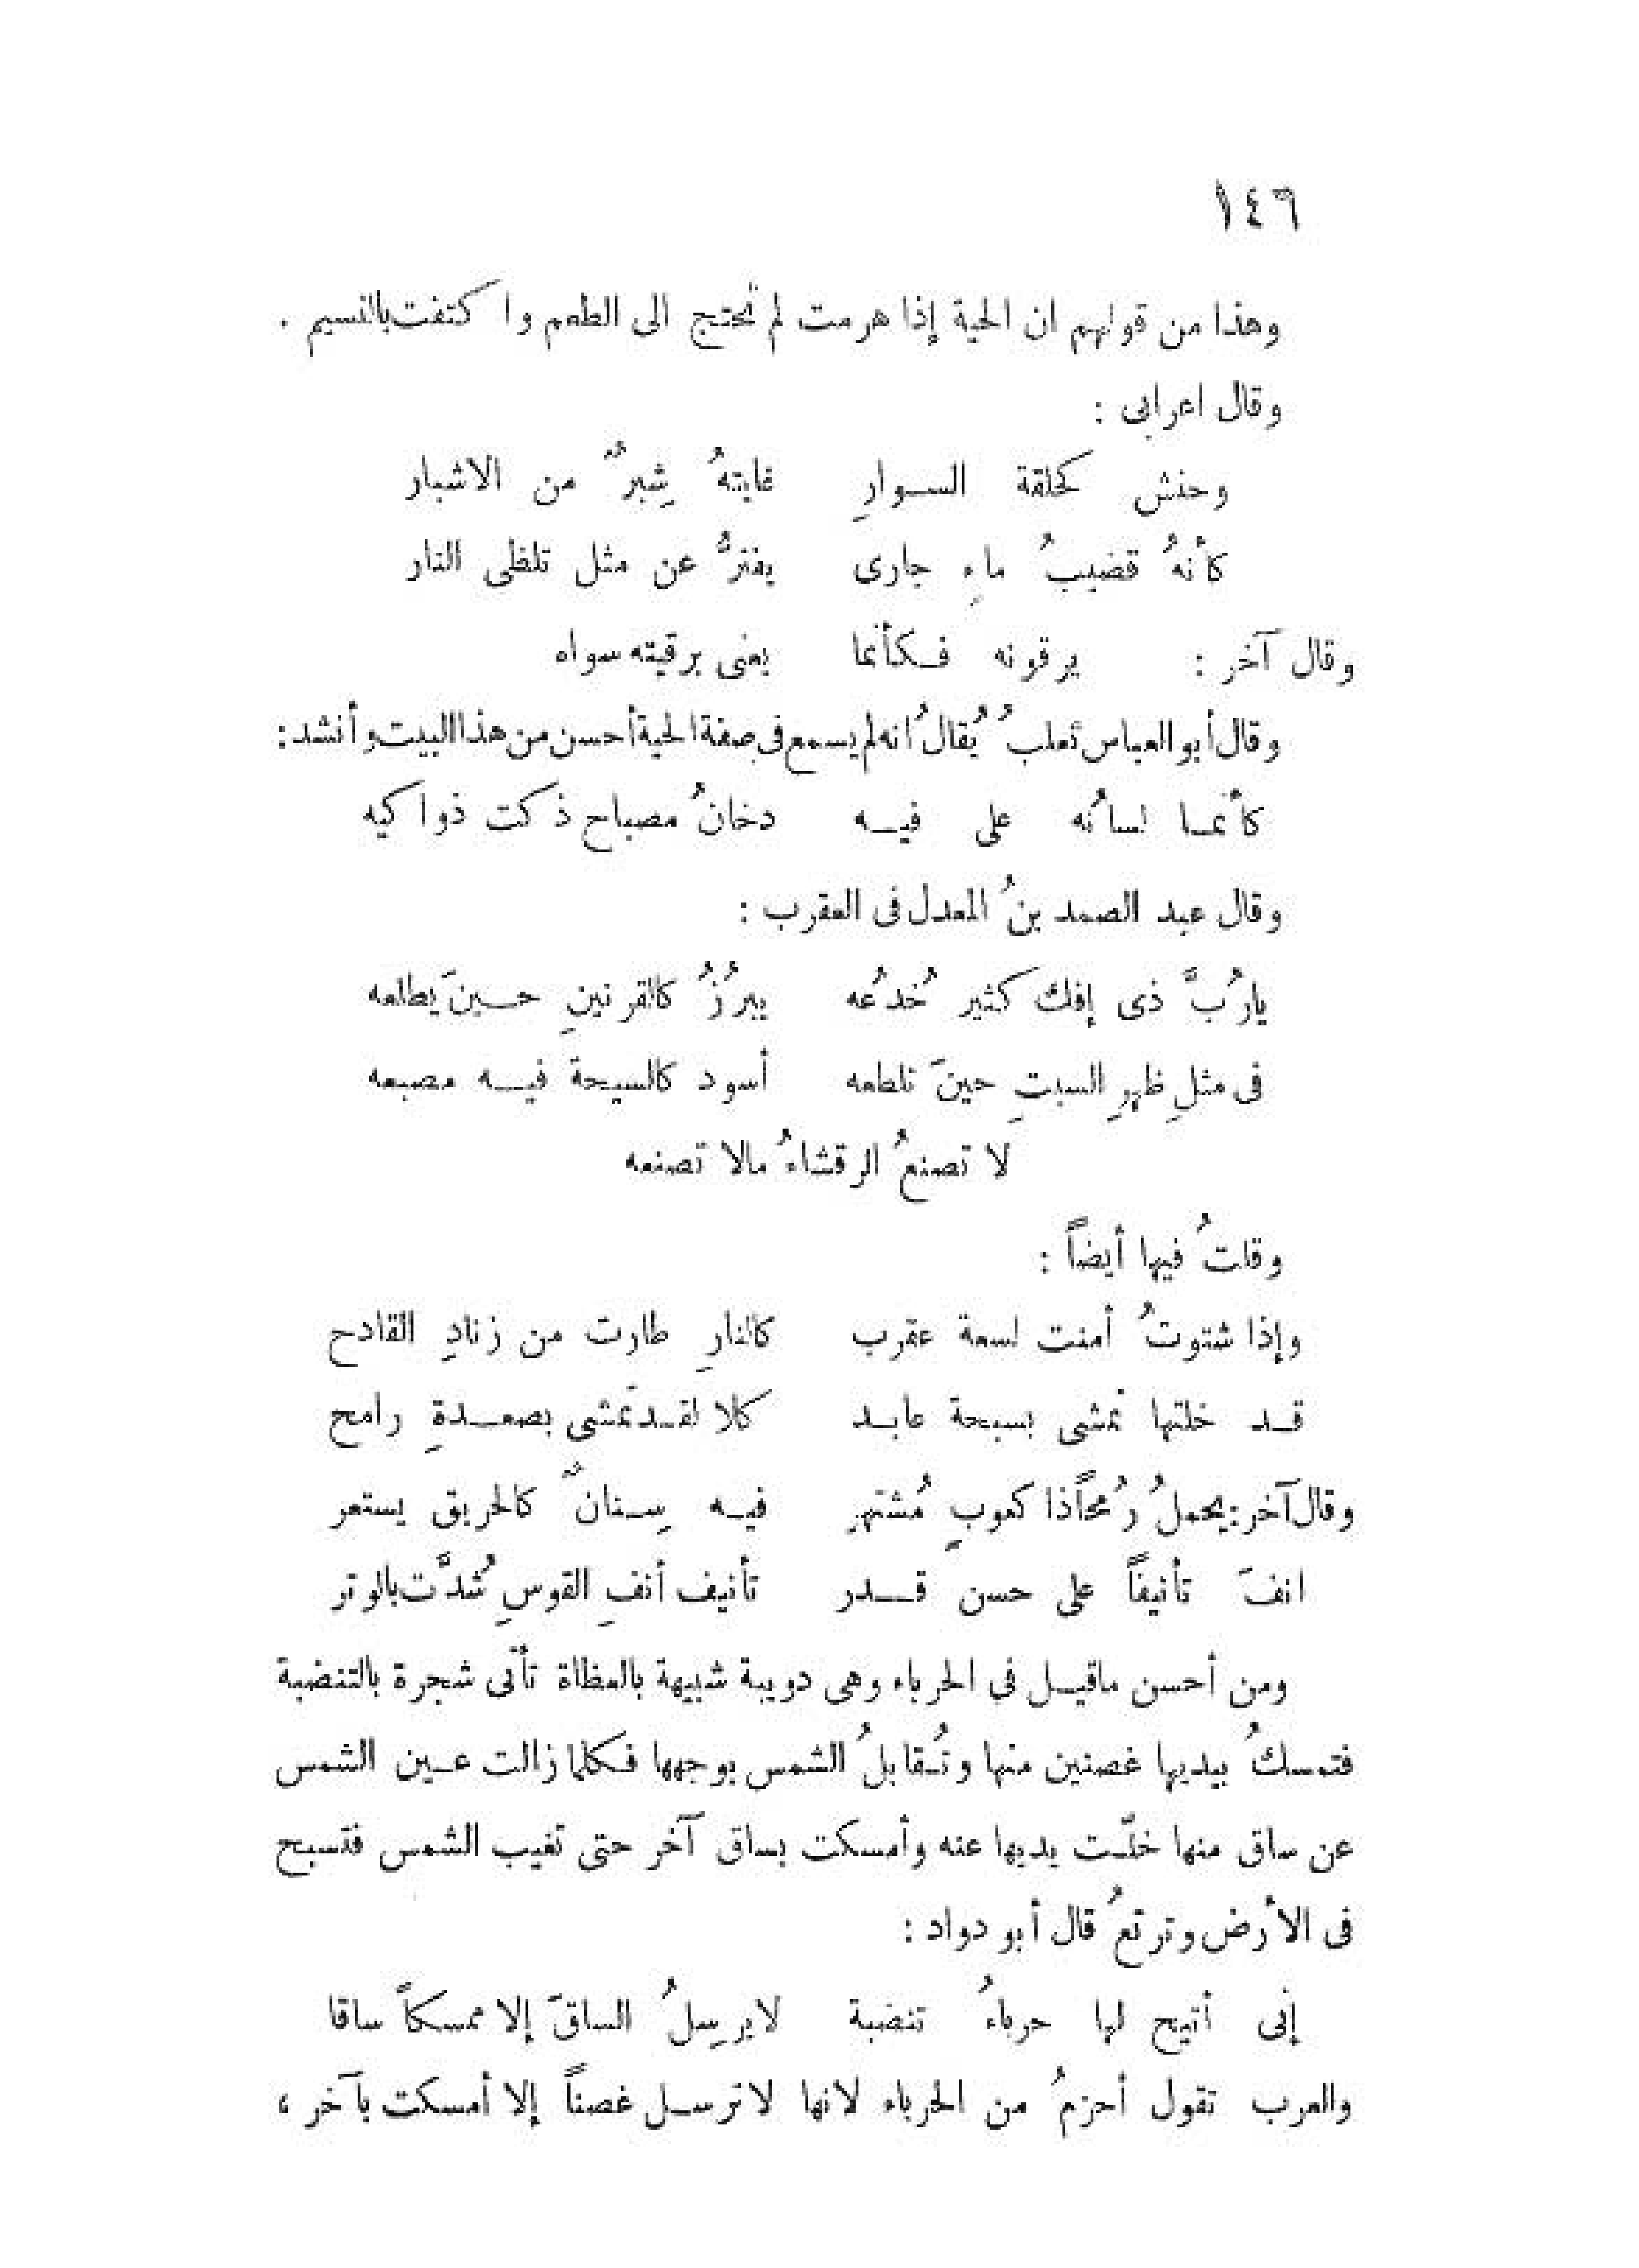 ١٤٦
وهذا من قولهم ان الحية إذا هرمت لم تحتج الى الطعم واكتفت بالنسيم .
وقال اعرابى :
وحنش كحلقة الســوارِ غايتهُ شِبرٌ من الاشبار
كأنهُ قضيبُ ماءِ جارى يفترُّ عن مثل تلظى النار
وقال آخر : يرقونه فــكأنما يعنى برقيته سواه
وقال أبو العباس ثعلبُ يُقالُ انه لم يسمع فى صفة الحية أحسن من هذا البيت وأنشد :
كأنمــا لسانُه على فيــه دخانُ مصباح ذكت ذواكيه
وقال عبد الصمد بنُ المعدل فى العقرب :
يارُبَّ ذى إفك كثير خُدعُه يبرُزُ كالقرنينِ حــينَ يطلعه
فى مثلِ ظهرِ السبتِ حينَ تلطعه أسود كالسيحة فيــه مصبعه
لا تصنعُ الرقشاءُ مالا تصنعه
وقلتُ فيها أيضاً :
وإذا شتوتُ أمنت لسعة عقرب كالنارِ طارت من زنادِ القادح
قــد خلتها تمشى بسبحة عابــد كلا لقــد تمشى بصعــدةِ رامح
وقال آخر : يحملُ رُمحاً ذا كعوبٍ مُشتهر فيــه سِــنانٌ كالحريق يستعر
انفَ تأنيفاً على حسن قــدر تأنيف أنفِ القوسِ شُدَّت بالوتر
ومن أحسن ماقيــل فى الحرباء وهى دويبة شبيهة بالعظاة تأتى شجرة بالتنضبة
فتمسكُ بيديها غصنين منها وتُــقابلُ الشمس بوجهها فــكلما زالت عــين الشمس
عن ساق منها خلّــت يديها عنه وأمسكت بساق آخر حتى تغيب الشمس فتسبح
فى الأرض وترتعُ قال أبو دواد :
إنى أتيح لها حرباءُ تنضبة لايرسِلُ الساقَ إلا ممسكاً ساقا
والعرب تقول أحزمُ من الحرباء لانها لا ترســل غصناً إلا أمسكت بآخر ،